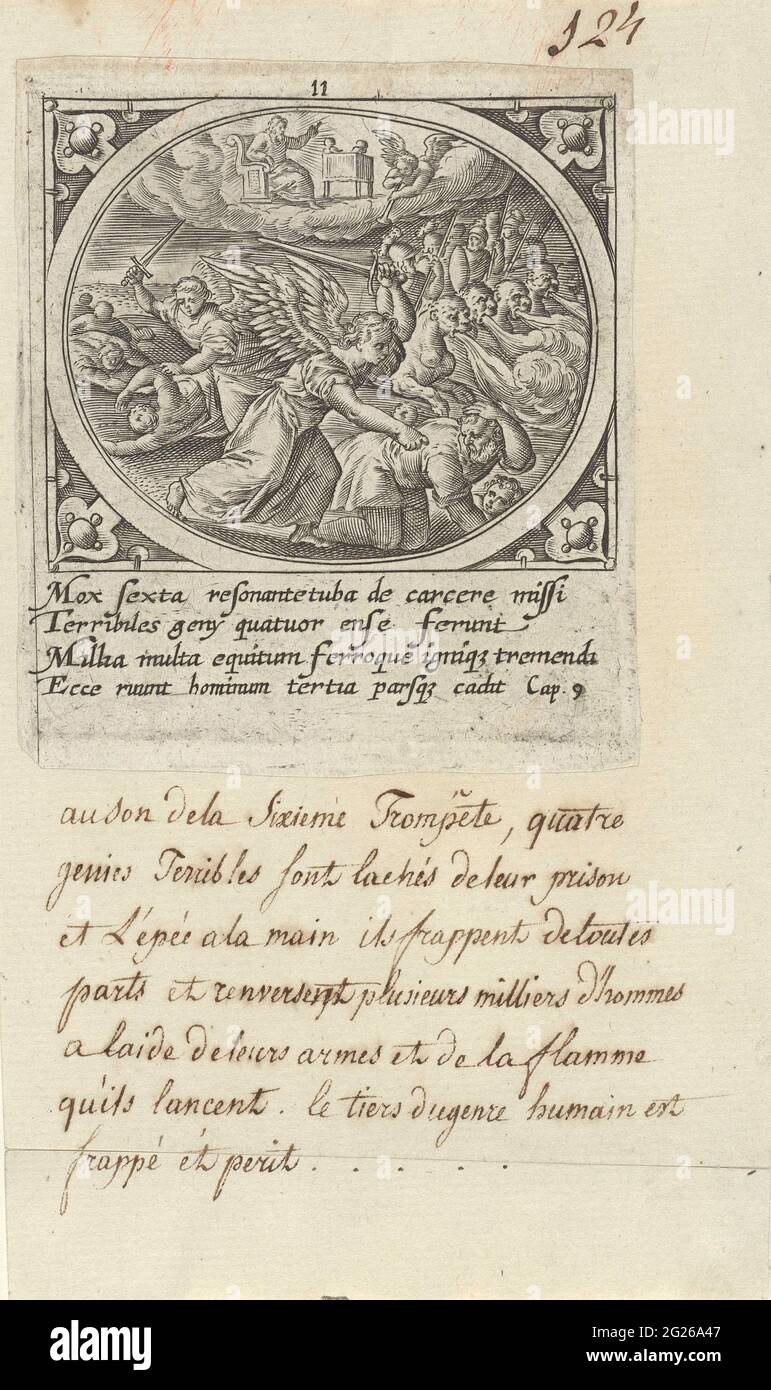 124
11
Mox sexta resonante tuba de carcere missi
Terribiles genÿ quatuor ense ferunt
Millia multa equitum ferroque igniq; tremendi
Ecce ruunt hominum tertia parsq; cadit Cap. 9
au son de la Sixieme Trompete, quatre
genies Terribles sont lachés de leur prison
et L'épée a la main ils frappent de toutes
parts et renversent plusieurs milliers d'hommes
a laide de leurs armes et de la flamme
qu'ils lancent. le tiers du genre humain est
frappé et perit . . . . .
alamy
alamy
a
a
a
a
alamy
Image ID: 2G26A47
www.alamy.com